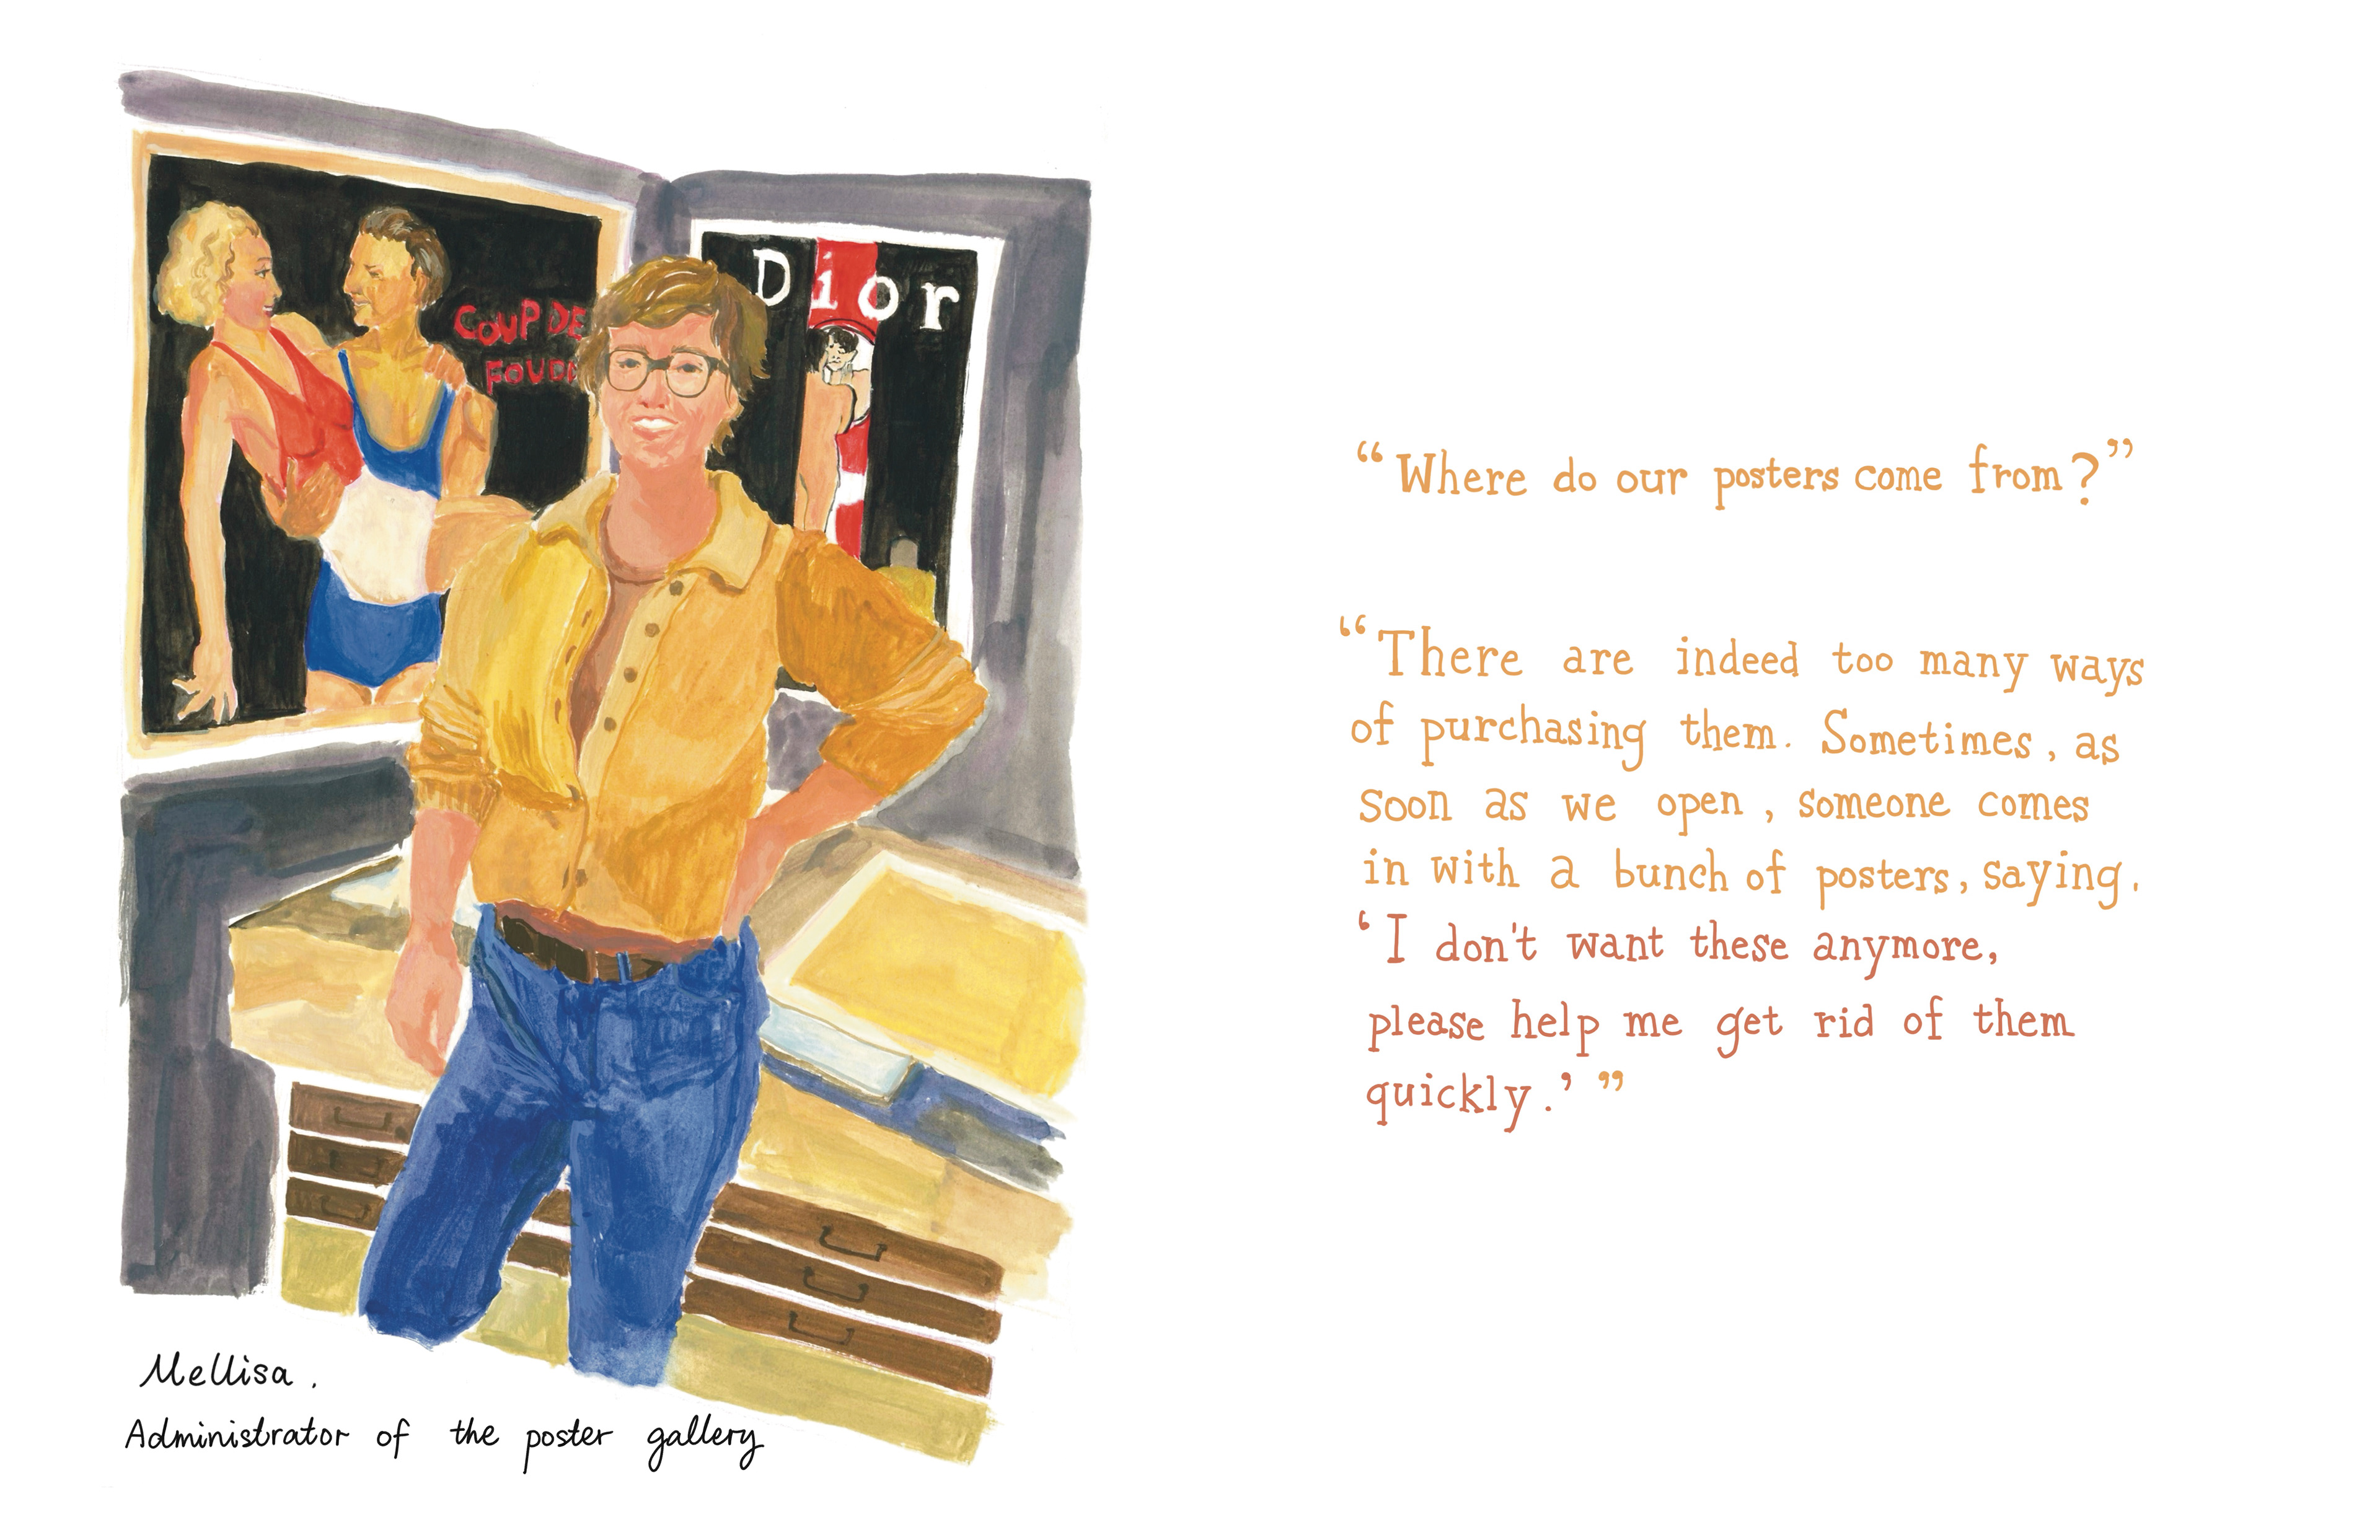 COUP DE
FOUD
Dior
Mellisa .
Administrator of the poster gallery
“Where do our posters come from?”
“There are indeed too many ways
of purchasing them. Sometimes, as
soon as we open, someone comes
in with a bunch of posters, saying.
‘I don't want these anymore,
please help me get rid of them
quickly.’ ”